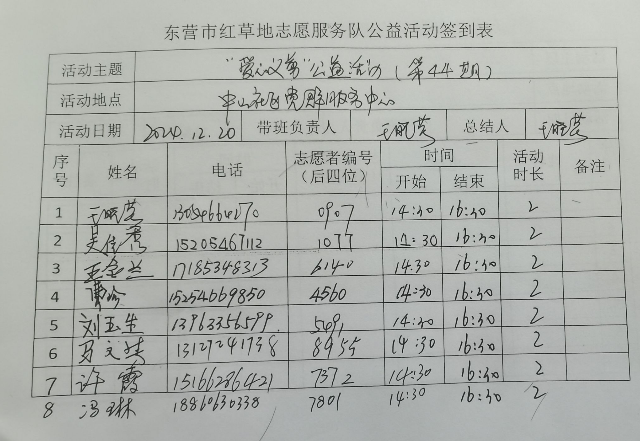 东营市红草地志愿服务队公益活动签到表
活动主题 “爱心义剪”公益活动（第44期）
活动地点 中山社区党群服务中心
活动日期 2024.12.20 带班负责人 王晓芸 总结人 王晓芸
序号 姓名 电话 志愿者编号（后四位） 时间 开始 结束 活动时长 备注
1 王晓芸 13054664270 0907 14:30 16:30 2
2 15205467112 1077 14:30 16:30 2
3 王金兰 17185348313 6140 14:30 16:30 2
4 15254669850 4560 14:30 16:30 2
5 刘玉生 13963356599 5091 14:30 16:30 2
6 马文 13127241738 8955 14:30 16:30 2
7 许霞 15166286421 7372 14:30 16:30 2
8 冯琳 18860630338 7801 14:30 16:30 2